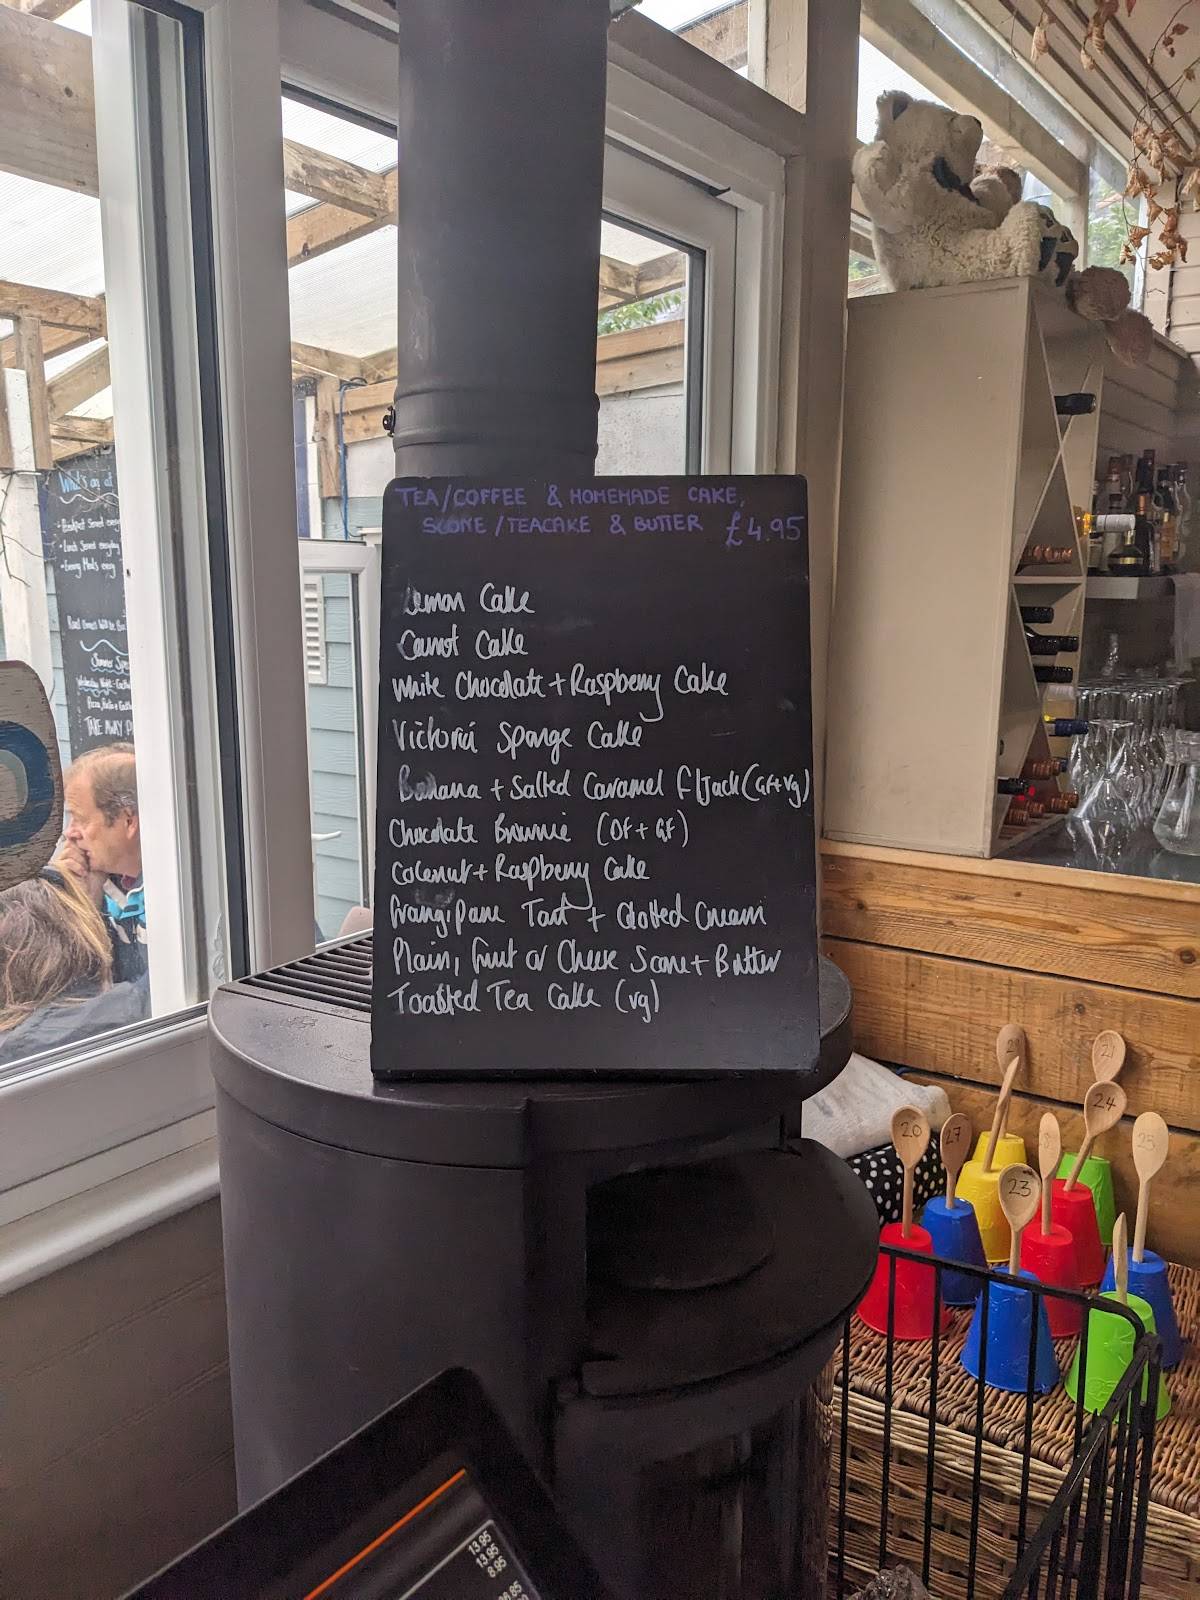 TEA/COFFEE & HOMEMADE CAKE,
SCONE/TEACAKE & BUTTER £4.95
Lemon Cake
Carrot Cake
White Chocolate + Raspberry Cake
Victoria Sponge Cake
Banana + Salted Caramel F/Jack (GF+Vg)
Chocolate Brownie (DF + GF)
Coconut + Raspberry Cake
Frangipane Tart + Clotted Cream
Plain, Fruit or Cheese Scone + Butter
Toasted Tea Cake (vg)
What's on at
• Breakfast Served every
• Lunch Served everyday
• Evening Meals every
Summer Spe
TAKE AWAY P
20
27
21
24
25
23
13.95
13.95
8.95